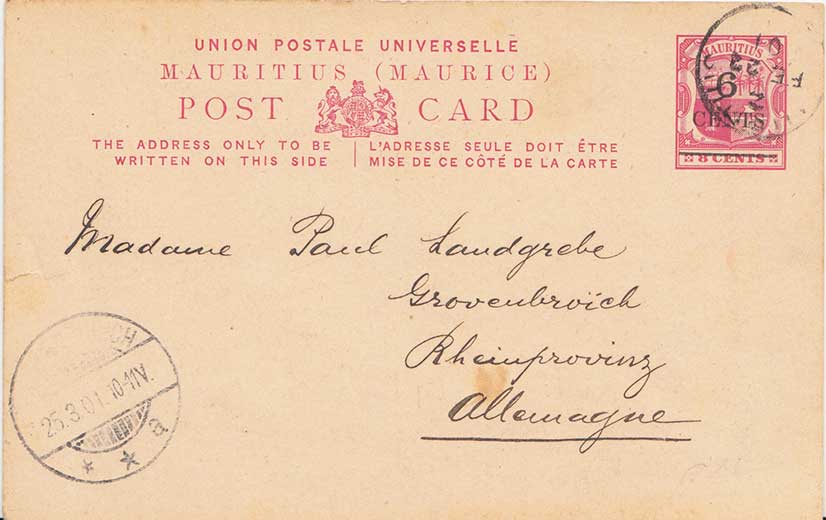 UNION POSTALE UNIVERSELLE
MAURITIUS (MAURICE)
POST CARD
THE ADDRESS ONLY TO BE WRITTEN ON THIS SIDE
L'ADRESSE SEULE DOIT ÊTRE MISE DE CE CÔTÉ DE LA CARTE
MAURITIUS
6
CENTS
8 CENTS
FE 22 01
Madame Paul Landgrebe
Grovenbroïch
Rheinprovinz
Allemagne
CH
25.3.01.10-11V.
* * a